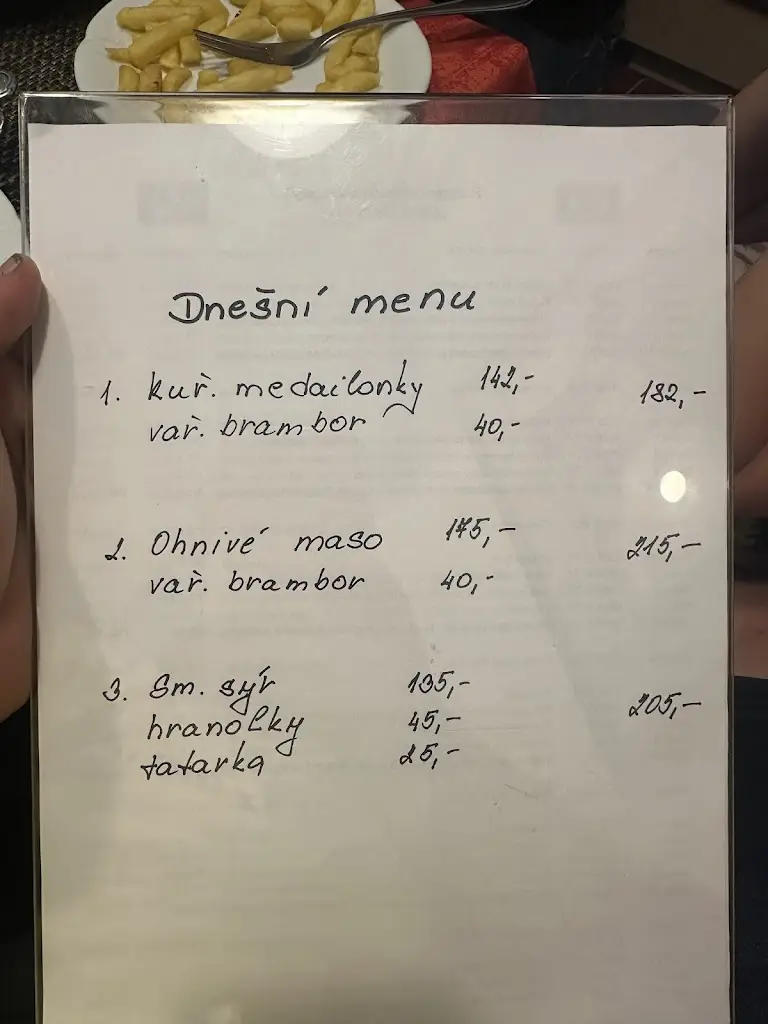 Dnešní menu
1. kuř. medailonky 142,- 182,-
vař. brambor 40,-
2. Ohnivé maso 175,- 215,-
vař. brambor 40,-
3. Sm. sýr 135,- 205,-
hranolky 45,-
tatarka 25,-